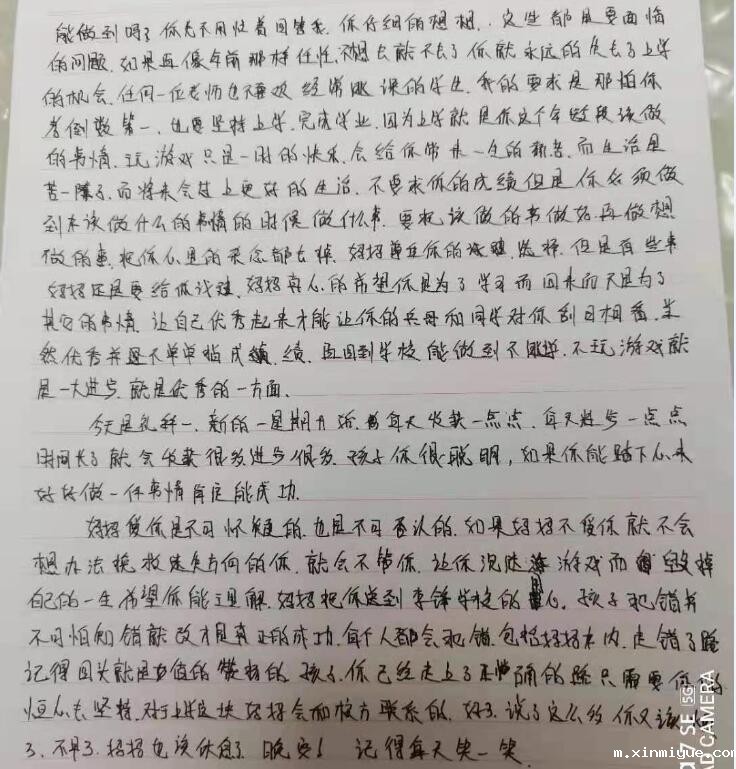 能做到吗？你先不用忙着回答我，你仔细的想想，这些都是要面临
的问题，如果再像年前那样任性，不想去就不去了你就永远的失去了上学
的机会，任何一位老师也不喜欢经常逃课的学生，我的要求是那怕你
考倒数第一，也要坚持上学，完成学业，因为上学就是你这个年龄段该做
的事情，玩游戏只是一时的快乐，会给你带来一生的而生活是
苦一阵子，而将来会过上更好的生活，不要求你的成绩但是你必须做
到在该做什么的事情的时候做什么事，要把该做的事做好，再做想
做的事，把你心里的杂念都去掉，妈妈尊重你的选择，但是有些事
妈妈还是要给你妈妈真心的希望你是为了学习而回来而不是为了
其它的事情，让自己优秀起来才能让你的父母和同学对你刮目相看，当
然优秀并不单单指成绩，再回到学校能做到不逃学，不玩游戏就
是一大进步，就是优秀的一方面。
今天是礼拜一，新的一星期开始，每天收获一点点，每天进步一点点
时间长了就会收获很多进步很多，孩子你很聪明，如果你能踏下心来
好好做一件事情肯定能成功。
妈妈爱你是不可怀疑的，也是不可否认的，如果妈妈不爱你就不会
想办法挽救迷失方向的你，就会不管你，让你沉迷游戏而毁掉
自己的一生希望你能理解，妈妈把你送到李锋学校的用心，孩子犯错并
不可怕知错就改才是真正的成功，每个人都会犯错，包括妈妈在内，走错了路
记得回头就是的，孩子，你已经走上了正确的路只需要你的
恒心去坚持，对于上学这块妈妈会和校方联系的，好了，说了这么多你又该
了，不早了，妈妈也该休息了，晚安！ 记得每天笑一笑
7 SE 5G
AD CAMERA
m.xinmiyue.com